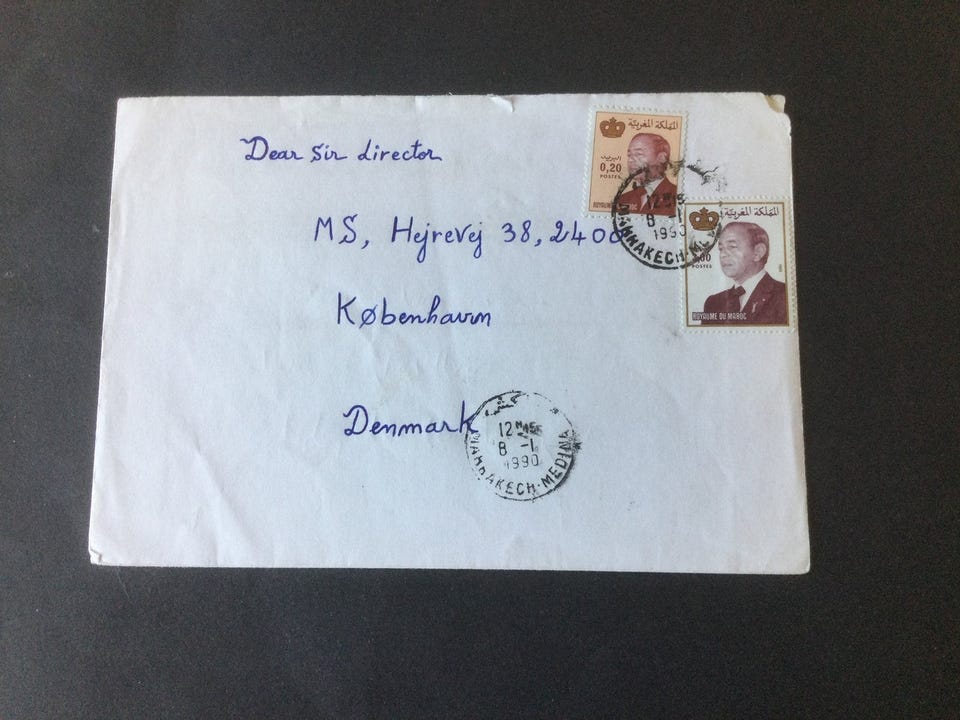 Dear Sir director
MS, Hejrevej 38, 2400
København
Denmark
المملكة المغربية
البريد
0,20
POSTES
ROYAUME DU MAROC
المملكة المغربية
POSTES
ROYAUME DU MAROC
12
8 -1
1990
MARRAKECH-MEDINA
12
8 -1
1990
MARRAKECH-MEDINA